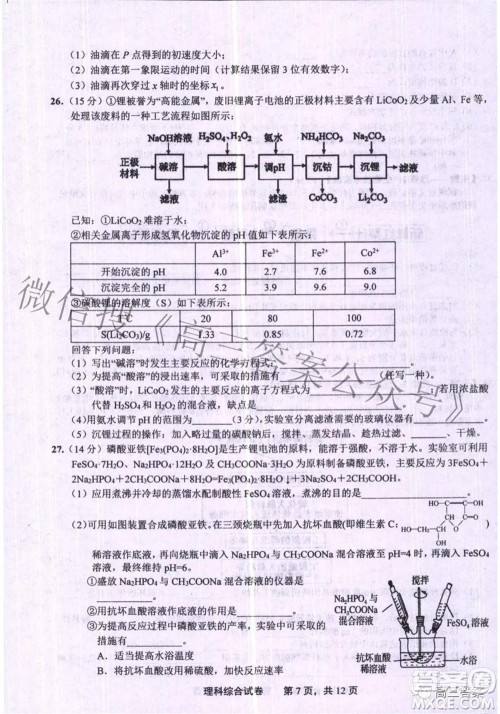 (1)油滴在 P 点得到的初速度大小;
(2)油滴在第一象限运动的时间(计算结果保留 3 位有效数字);
(3)油滴再次穿过 x 轴时的坐标 x₁。
26.(15 分)①锂被誉为“高能金属”,废旧锂离子电池的正极材料主要含有 LiCoO₂ 及少量 Al、Fe 等,
处理该废料的一种工艺流程如图所示:
NaOH溶液 H₂SO₄、H₂O₂ 氨水 NH₄HCO₃ Na₂CO₃
正极材料 碱溶 酸溶 调pH 沉钴 沉锂 滤液
滤液 滤渣 CoCO₃ Li₂CO₃
已知:①LiCoO₂ 难溶于水;
②相关金属离子形成氢氧化物沉淀的 pH 范围如下表所示:
Al³⁺ Fe³⁺ Fe²⁺ Co²⁺
开始沉淀的 pH 4.0 2.7 7.6 6.8
沉淀完全的 pH 5.2 3.9 9.6 9.0
③碳酸锂的溶解度(S)如下表所示:
℃ 20 80 100
S(Li₂CO₃)/g 1.33 0.85 0.72
回答下列问题:
(1)写出“碱溶”时发生主要反应的化学方程式:
(2)为提高“酸溶”的浸出速率,可采取的措施有 (任写一种)。
(3)“酸溶”时,LiCoO₂ 发生主要反应的离子方程式为 ;若用浓盐酸
代替 H₂SO₄ 和 H₂O₂ 的混合液,缺点是 。
(4)用氨水调节 pH 的范围为 ,实验室分离滤渣需要的玻璃仪器有 。
(5)沉锂过程的操作:加入略过量的碳酸钠后,搅拌、蒸发结晶、 、 、干燥。
27.(14 分)磷酸亚铁[Fe₃(PO₄)₂·8H₂O]是生产锂电池的原料,能溶于强酸,不溶于水。实验室可利用
FeSO₄·7H₂O、Na₂HPO₄·12H₂O 及 CH₃COONa 为原料制备磷酸亚铁,主要反应为 3FeSO₄+
2Na₂HPO₄+2CH₃COONa+8H₂O=Fe₃(PO₄)₂·8H₂O↓+3Na₂SO₄+2CH₃COOH。
(1)应用煮沸并冷却的蒸馏水配制酸性 FeSO₄ 溶液,煮沸的目的是 。
(2)可用如图装置合成磷酸亚铁。在三颈烧瓶中先加入抗坏血酸(即维生素 C:
稀溶液作底液,再向烧瓶中滴入 Na₂HPO₄ 与 CH₃COONa 混合溶液至 pH=4 时,再滴入 FeSO₄
溶液,最终维持 pH=6。
①盛放 Na₂HPO₄ 与 CH₃COONa 混合溶液的仪器是 。
②用抗坏血酸溶液作底液的作用有 。
③为提高反应过程中磷酸亚铁的产率,实验中可采取的
措施有 。
A、适当提高水浴温度
B、将抗坏血酸改用稀硫酸,加快反应
搅拌
Na₂HPO₄ 与
CH₃COONa
混合溶液
FeSO₄溶液
抗坏血酸
稀溶液
水浴
理科综合试卷 第 7 页,共 12 页
微信搜《高三答案公众号》
高三答案